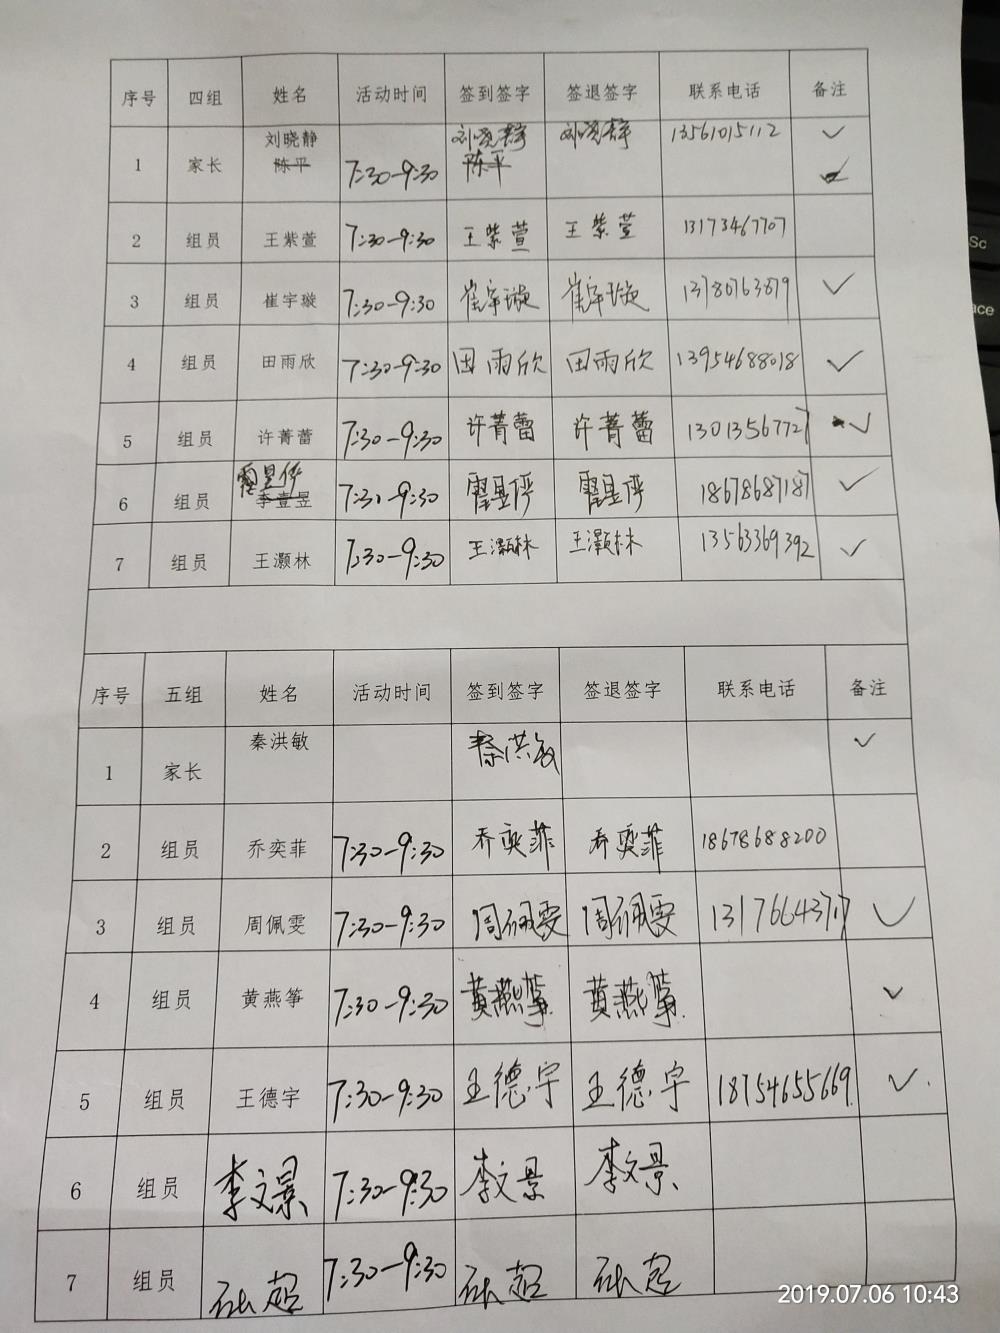 序号 四组 姓名 活动时间 签到签字 签退签字 联系电话 备注
刘晓静 刘晓静 刘晓静 13561015112 ✓
1 家长 陈平 7:30-9:30 陈平
2 组员 王紫萱 7:30-9:30 王紫萱 王紫萱 13173467707
3 组员 崔宇璇 7:30-9:30 崔宇璇 崔宇璇 13780763879 ✓
4 组员 田雨欣 7:30-9:30 田雨欣 田雨欣 13954688018 ✓
5 组员 许菁蕾 7:30-9:30 许菁蕾 许菁蕾 13013567727 ✓
6 组员 李壹昱 7:30-9:30 18678687187 ✓
7 组员 王灏林 7:30-9:30 王灏林 王灏林 13563369392 ✓
序号 五组 姓名 活动时间 签到签字 签退签字 联系电话 备注
1 家长 秦洪敏 秦洪敏 ✓
2 组员 乔奕菲 7:30-9:30 乔奕菲 乔奕菲 18678688200
3 组员 周佩雯 7:30-9:30 周佩雯 周佩雯 13176643717 ✓
4 组员 黄燕筝 7:30-9:30 黄燕筝 黄燕筝 ✓
5 组员 王德宇 7:30-9:30 王德宇 王德宇 18754655669 ✓
6 组员 李文景 7:30-9:30 李文景 李文景
7 组员 7:30-9:30
2019.07.06 10:43